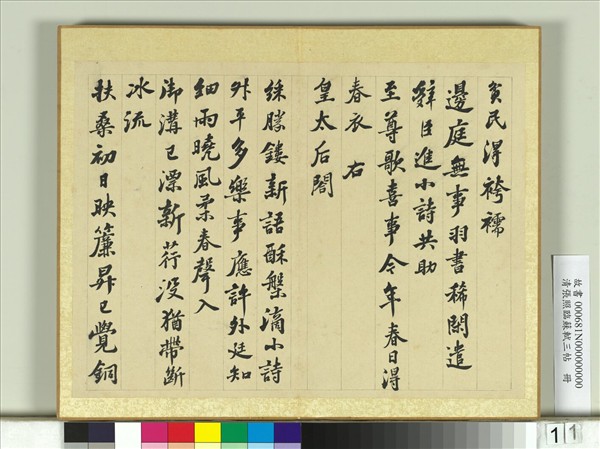 貧民得袴襦
邊庭無事羽書稀閑遣
辭臣進小詩共助
至尊歌喜事今年春日得
春衣 右
皇太后閣
綵勝鏤新語酥盤滴小詩
升平多樂事應許外廷知
細雨曉風柔春聲入
御溝已漂新荇没猶帶斷
冰流
扶桑初日映簾昇已覺銅
故書 000681N000000000
清張照臨蘇軾三帖 冊
11